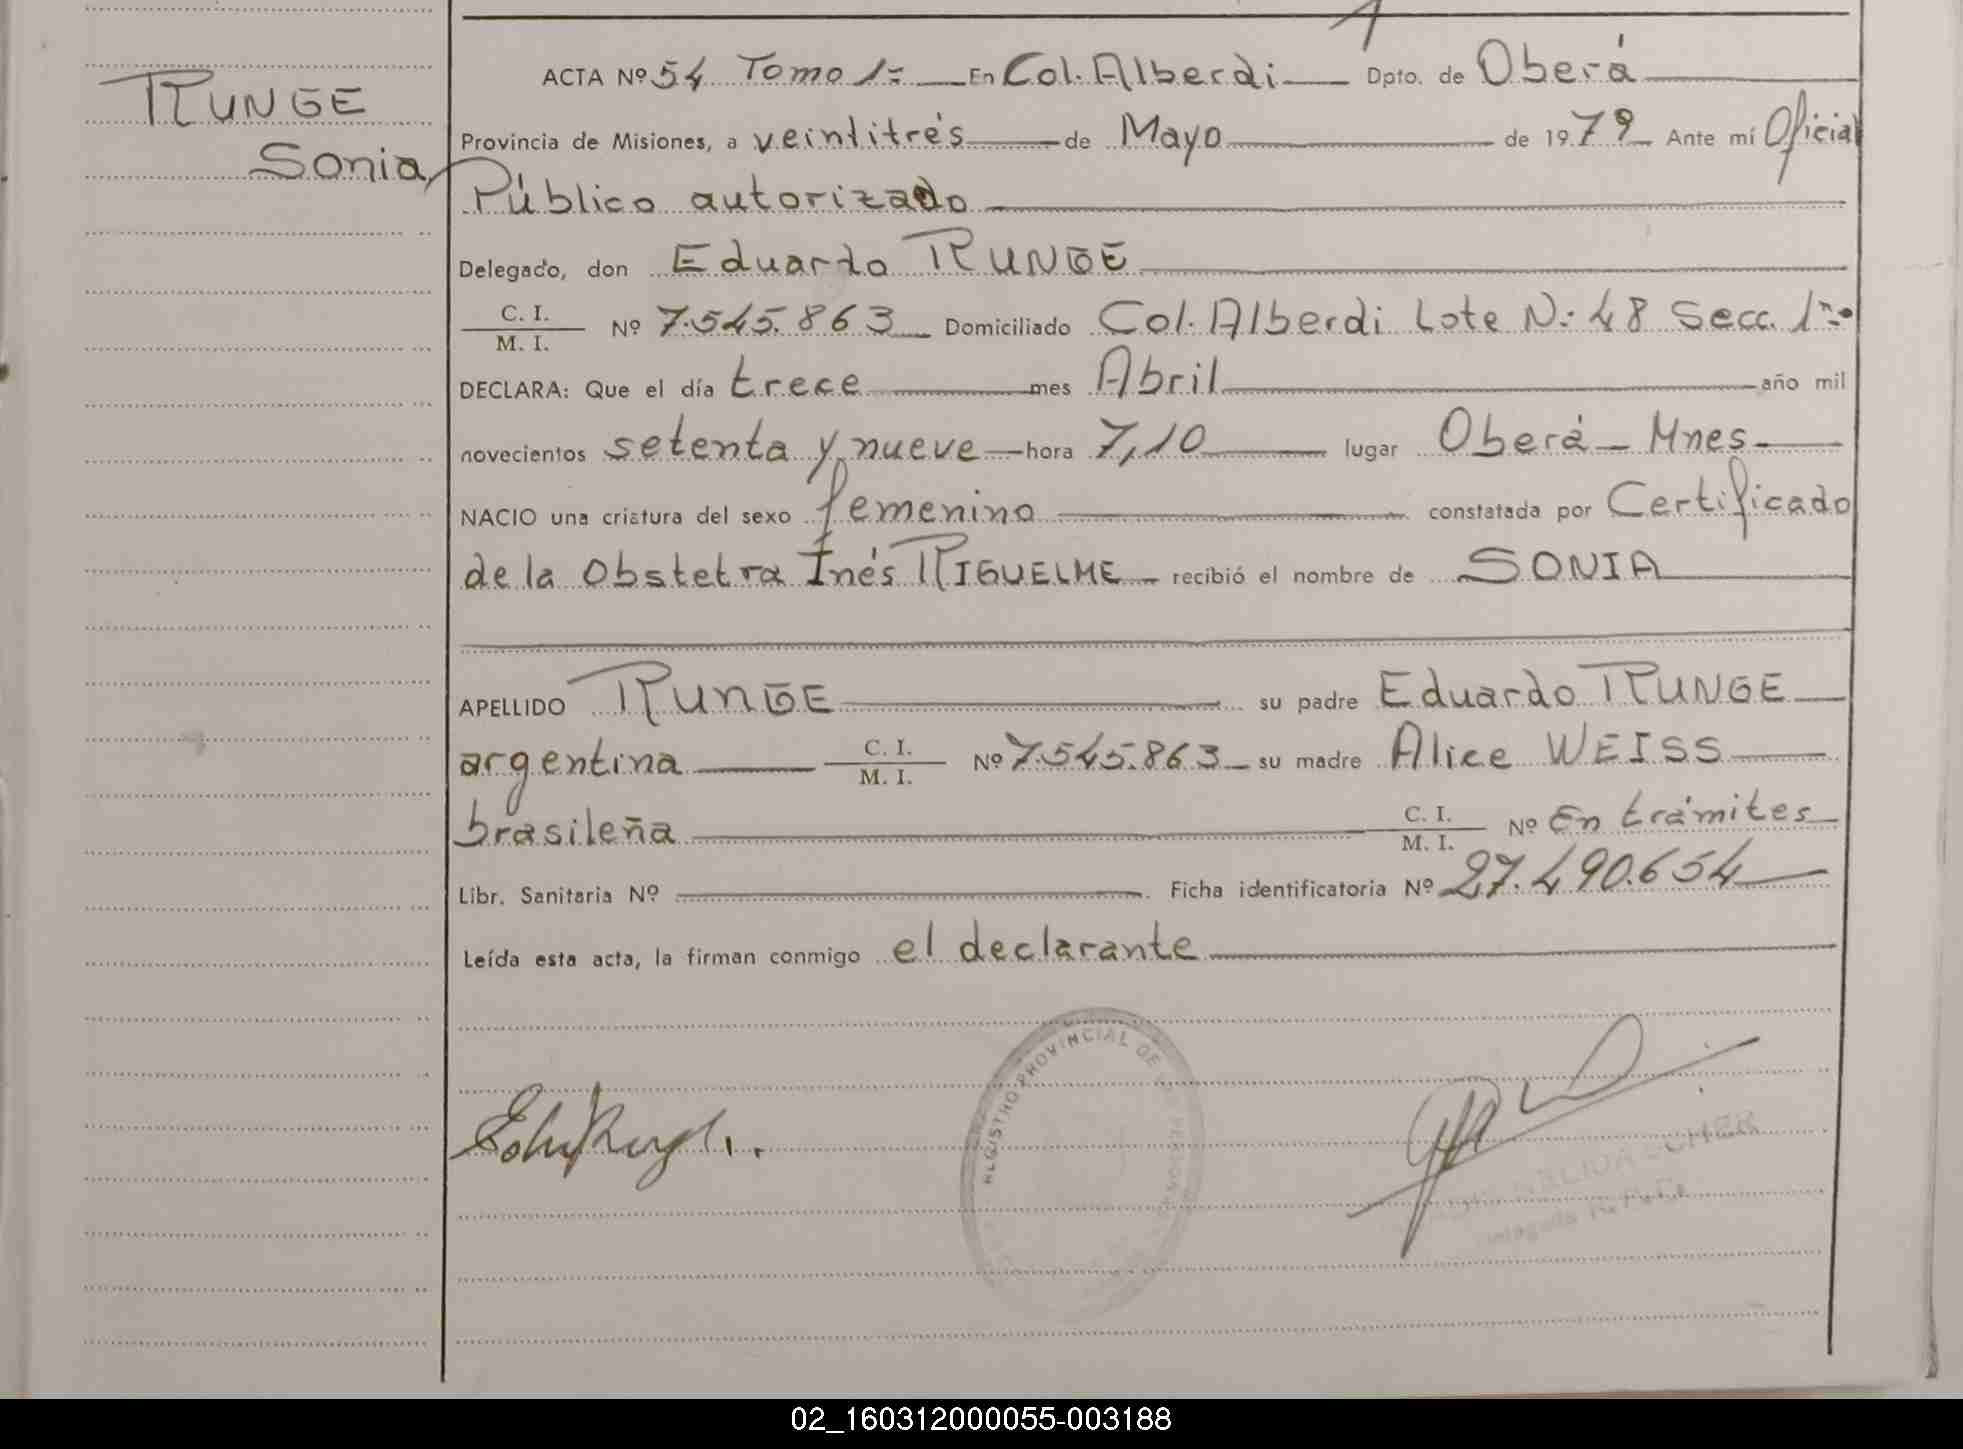 RUNGE
Sonia
ACTA Nº 54 Tomo 1= En Col. Alberdi Dpto. de Oberá
Provincia de Misiones, a veintitrés de Mayo de 1979 Ante mí Oficial
Público autorizado
Delegado, don Eduardo RUNGE
C. I.
M. I. Nº 7.545.863 Domiciliado Col. Alberdi Lote N: 48 Secc. 1ra
DECLARA: Que el día trece mes Abril año mil
novecientos setenta y nueve hora 7,10 lugar Oberá - Mnes
NACIO una criatura del sexo femenino constatada por Certificado
de la Obstetra Inés RIGUELME recibió el nombre de SONIA
APELLIDO RUNGE su padre Eduardo RUNGE
argentina C. I. M. I. Nº 7.545.863 su madre Alice WEISS
brasileña C. I. M. I. Nº En trámites
Libr. Sanitaria Nº Ficha identificatoria Nº 27.490.654
Leída esta acta, la firman conmigo el declarante
REGISTRO PROVINCIAL DE
02_160312000055-003188